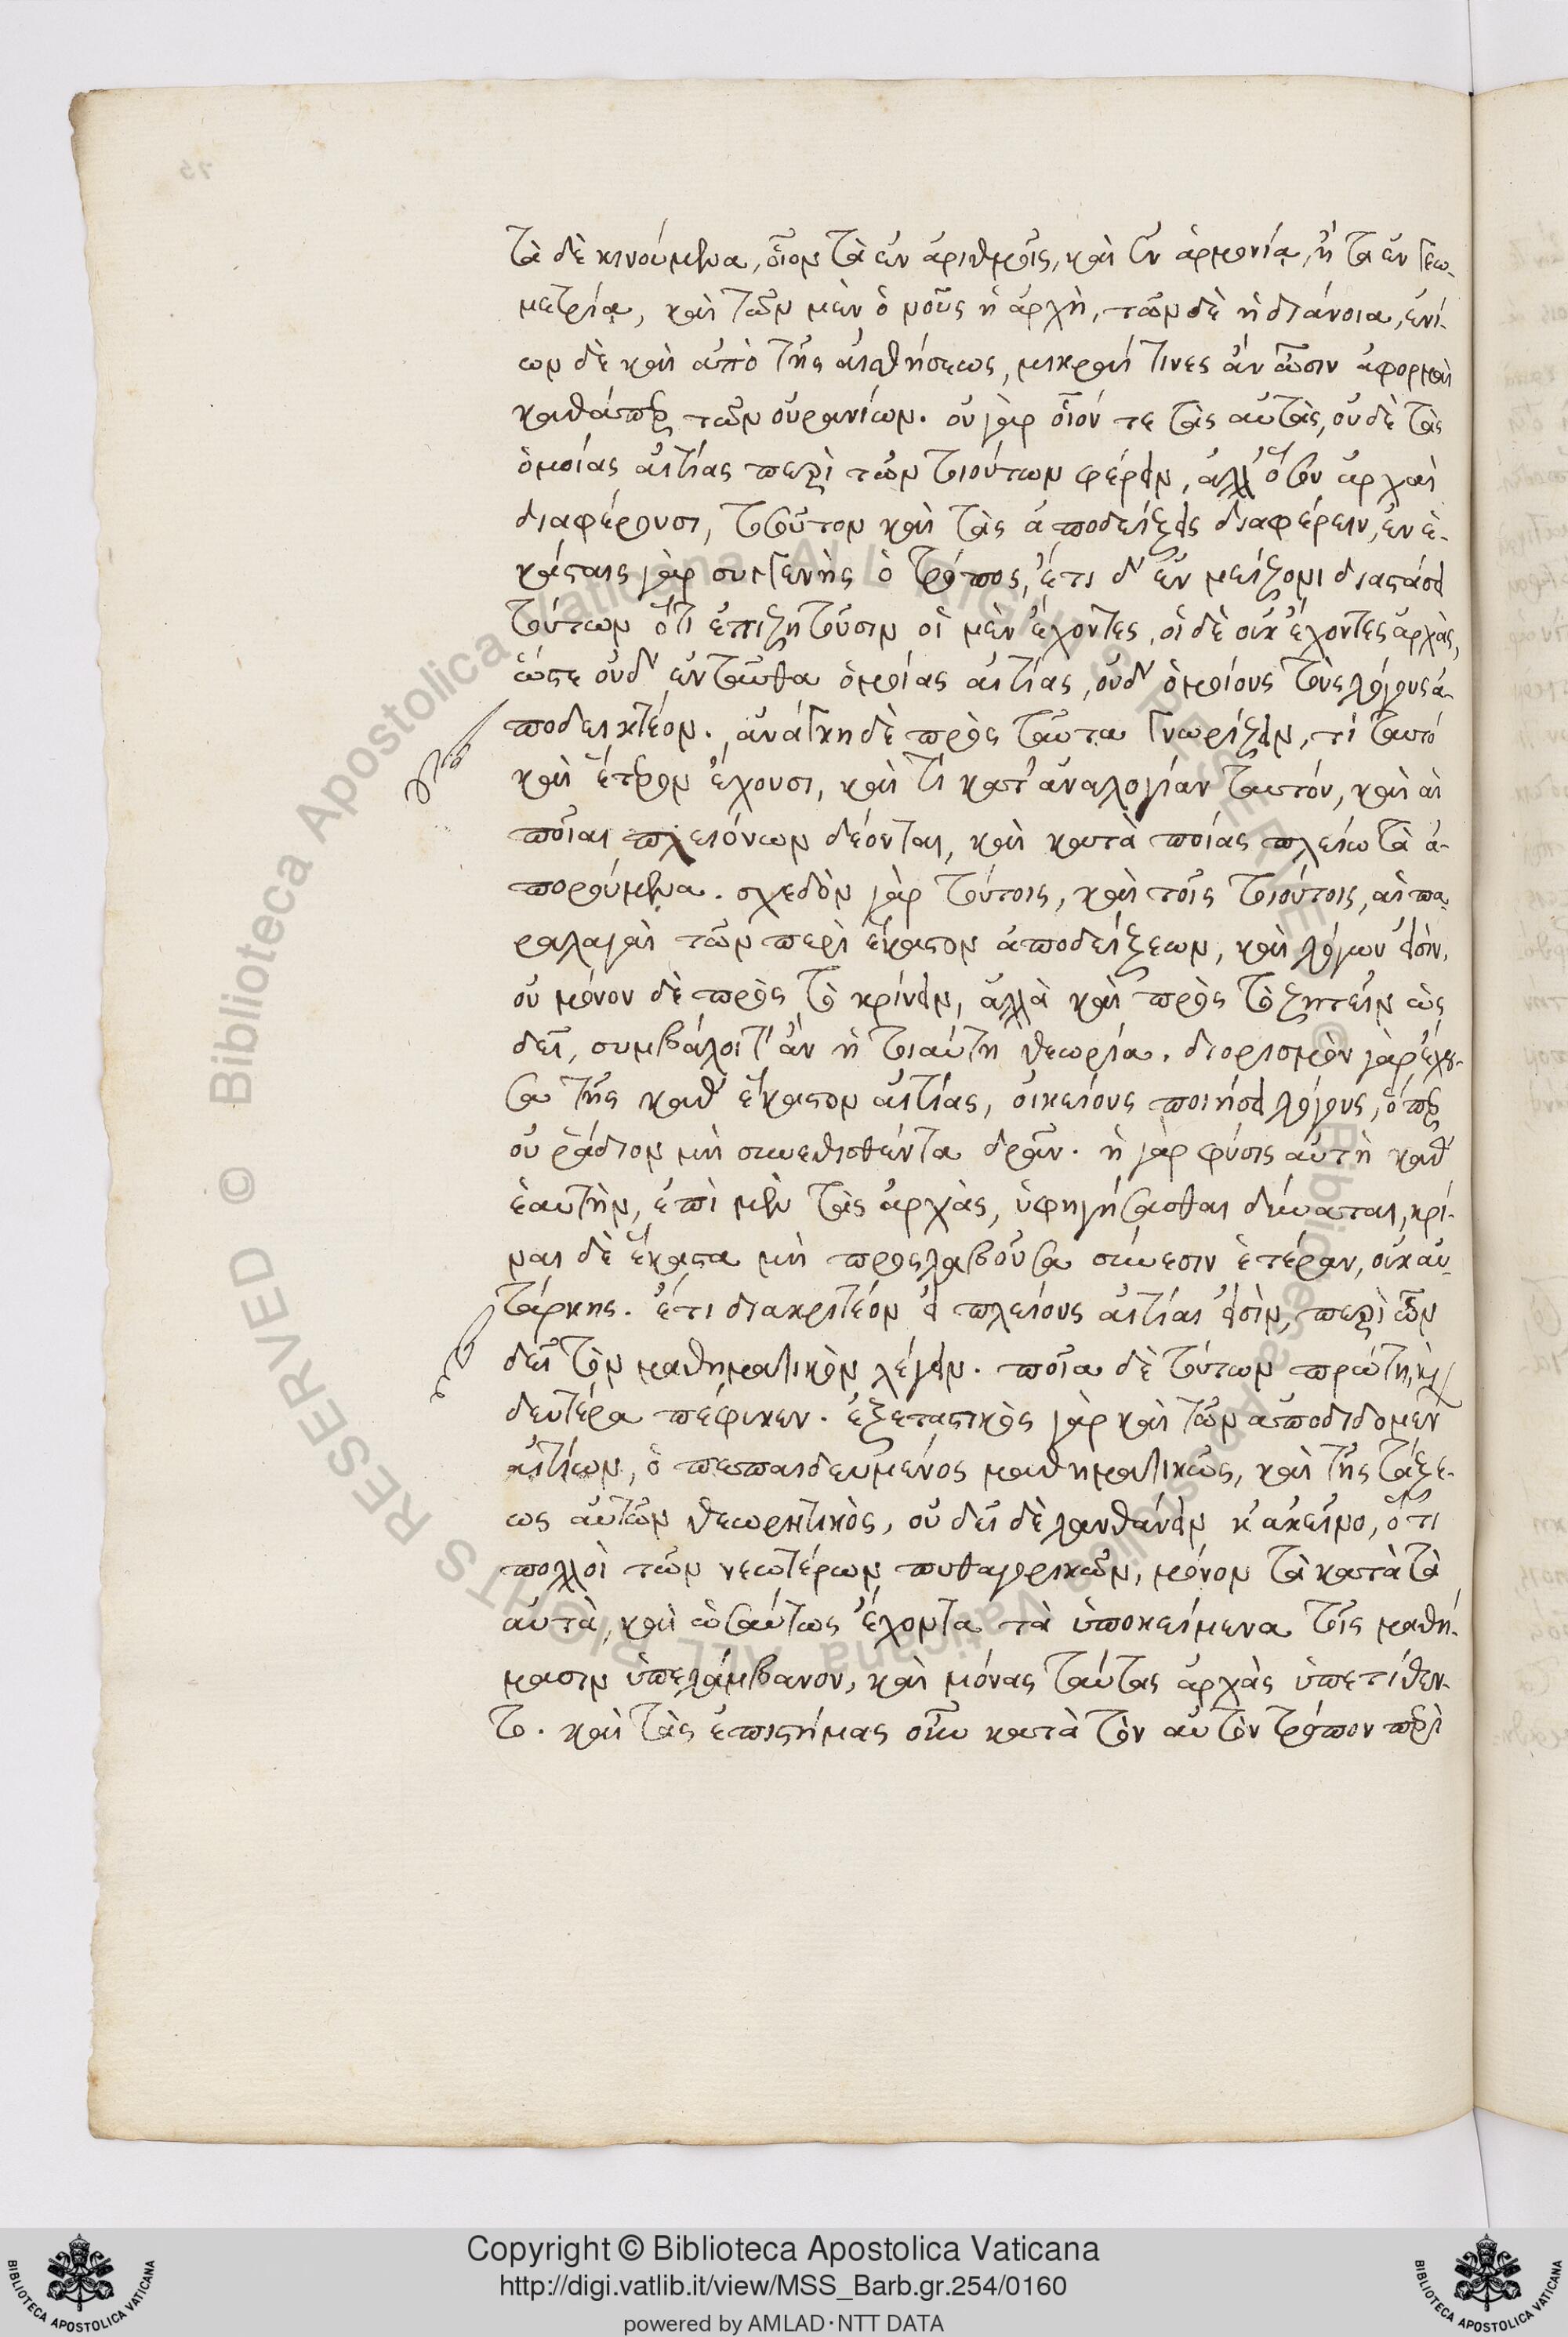 τὰ δὲ κινούμενα, οἷον τὰ ἐν ἀριθμοῖς, καὶ ἐν ἁρμονίᾳ, ἢ τὰ ἐν γεω-
μετρίᾳ, καὶ τῶν μὲν ὁ νοῦς ἡ ἀρχὴ, τῶν δὲ ἡ διάνοια, ἐνί-
ων δὲ καὶ ἀπὸ τῆς αἰσθήσεως, μικραί τινες ἂν ὦσιν ἀφορμαὶ
καθάπερ τῶν οὐρανίων. οὐ γὰρ οἷόν τε τὰς αὐτὰς, οὐδὲ τὰς
ὁμοίας αἰτίας περὶ τῶν τοιούτων φέρειν, ἀλλ' ὅσον ἀρχαὶ
διαφέρουσι, τοσοῦτον καὶ τὰς ἀποδείξεις διαφέρειν, ἐν ἑ-
κάσταις γὰρ συγγενὴς ὁ τρόπος, ἔτι δ' ἐν μείζονι διαστάσει
τούτων ὅτι ἐπιζητοῦσιν οἱ μὲν ἔχοντες, οἱ δὲ οὐκ ἔχοντες ἀρχὰς,
ὥστε οὐδ' ἐνταῦθα ὁμοίας αἰτίας, οὐδ' ὁμοίους τοὺς λόγους ἀ-
ποδεικτέον. ἀνάγκη δὲ πρὸς ταῦτα γνωρίζειν, τί ταυτό
καὶ ἕτερον ἔχουσι, καὶ τί κατ' ἀναλογίαν ταυτόν, καὶ αἱ
ποῖαι πλειόνων δέονται, καὶ κατὰ ποίας πλείω τὰ ἀ-
πορούμενα. σχεδὸν γὰρ τούτοις, καὶ τοῖς τοιούτοις, αἱ πα-
ραλαγαὶ τῶν περὶ ἕκαστον ἀποδείξεων, καὶ λόγων εἰσίν.
οὐ μόνον δὲ πρὸς τὸ κρίνειν, ἀλλὰ καὶ πρὸς τὸ ζητεῖν ὡς
δεῖ, συμβάλοιτ' ἂν ἡ τοιαύτη θεωρία. διορισμὸν γὰρ ἔχου-
σα τῆς καθ' ἕκαστον αἰτίας, οἰκείους ποιήσει λόγους, ὅπερ
οὐ ῥάδιον μὴ συνεθισθέντα δρᾶν. ἡ γὰρ φύσις αὐτὴ καθ'
ἑαυτὴν, ἐπὶ μὲν τὰς ἀρχὰς, ὑφηγήσασθαι δύναται, κρί-
ναι δὲ ἕκαστα μὴ προσλαβοῦσα σύνεσιν ἑτέραν, οὐκ αὐ-
τάρκης. ἔτι διακριτέον εἰ πλείους αἰτίαι εἰσὶν, περὶ ὧν
δεῖ τὸν μαθηματικὸν λέγειν. ποία δὲ τούτων πρώτη, καὶ
δευτέρα πέφυκεν. ἐξεταστικὸς γὰρ καὶ τῶν ἀποδιδομέν
αἰτίων, ὁ πεπαιδευμένος μαθηματικῶς, καὶ τῆς τάξε-
ως αὐτῶν θεωρητικὸς, οὐ δεῖ δὲ λανθάνειν κἀκεῖνο, ὅτι
πολλοὶ τῶν νεωτέρων πυθαγορικῶν, μόνον τὰ κατὰ τὰ
αὐτὰ, καὶ ὡσαύτως ἔχοντα τὰ ὑποκείμενα τοῖς μαθή-
μασιν ὑπελάμβανον, καὶ μόνας ταύτας ἀρχὰς ὑπετίθεν-
το. καὶ τὰς ἐπιστήμας οὖν κατὰ τὸν αὐτὸν τρόπον περὶ
Copyright © Biblioteca Apostolica Vaticana
http://digi.vatlib.it/view/MSS_Barb.gr.254/0160
powered by AMLAD·NTT DATA